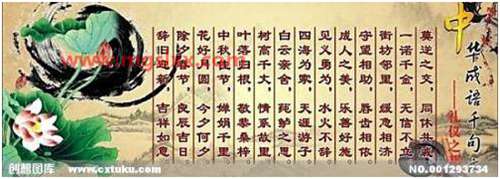 中华成语千句
——礼仪之
莫逆之交 同休共戚
一诺千金 无信不立
街坊邻里 缓急相济
守望相助 唇齿相依
成人之美 乐善好施
见义勇为 水火不辞
四海为家 天涯游子
白云亲舍 莼鲈之思
树高千丈 情系故里
叶落归根 敬恭桑梓
中秋佳节 婵娟千里
花好月圆 今夕何夕
除夕春节 良辰吉日
辞旧迎新 吉祥如意
创想图库 www.cxtuku.com
NO.001293734